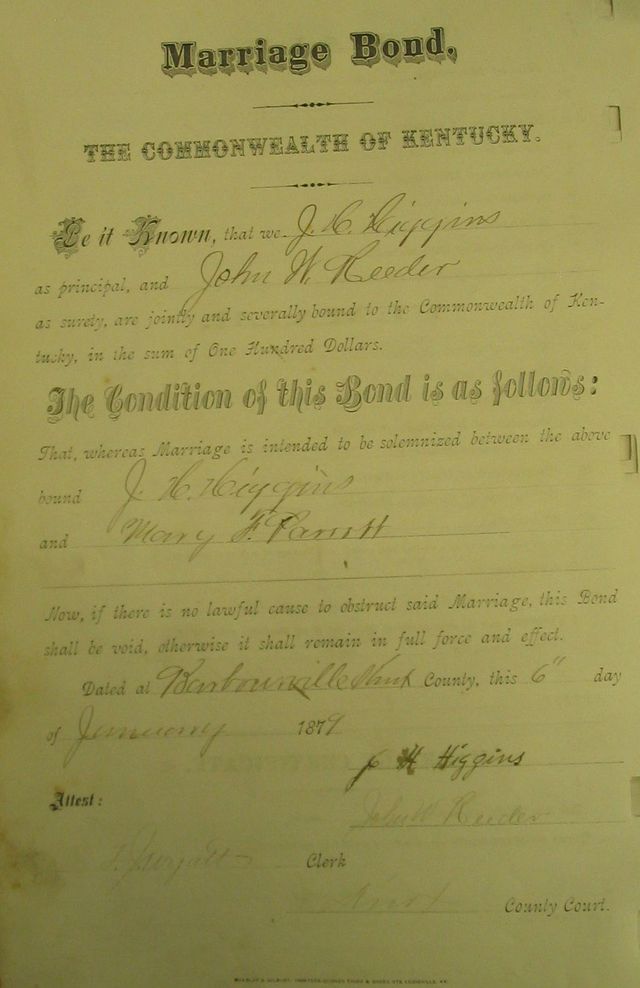 Marriage Bond,
THE COMMONWEALTH OF KENTUCKY.
Be it Known, that we J. H. Higgins
as principal, and John W. Reeder
as surety, are jointly and severally bound to the Commonwealth of Ken-
tucky, in the sum of One Hundred Dollars.
The Condition of this Bond is as follows:
That, whereas Marriage is intended to be solemnized between the above
bound J. H. Higgins
and Mary F. Parrott
Now, if there is no lawful cause to obstruct said Marriage, this Bond
shall be void, otherwise it shall remain in full force and effect.
Dated at Barbourville Knox County, this 6" day
of January 1879
J H Higgins
Attest: John W Reeder
Clerk
Knox County Court.